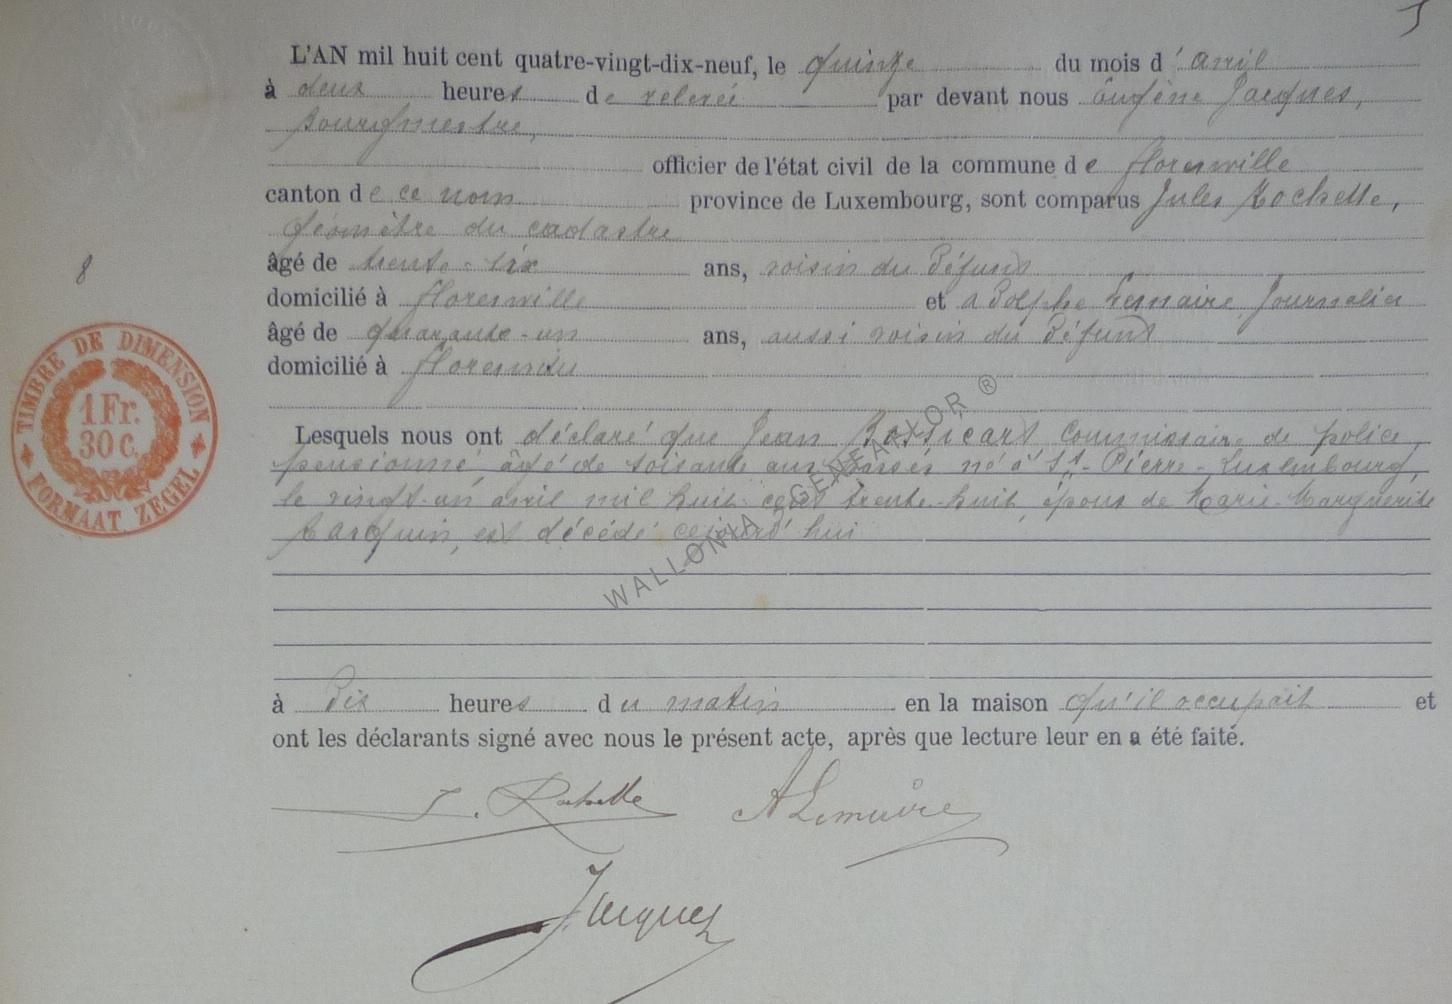 L'AN mil huit cent quatre-vingt-dix-neuf, le quinze du mois d'avril
à deux heures de relevée par devant nous Eugène Jacques,
Bourgmestre,
officier de l'état civil de la commune de florenville
canton de ce nom province de Luxembourg, sont comparus Jules Rochette,
Géomètre du cadastre
âgé de trente-six ans, voisin du défunt
8
domicilié à florenville et adolphe Lemaire, Journalier
âgé de quarante-un ans, aussi voisin du défunt
domicilié à florenville
TIMBRE DE DIMENSION
1 Fr.
30 C.
FORMAAT ZEGEL
Lesquels nous ont déclaré que Jean Bossicart Commissaire de police,
pensionné, âgé de soixante ans passés né à St-Pierre-Luxembourg,
le vingt-un avril mil huit cent trente-huit, époux de Marie-Marguerite
Tasquin, est décédé cejourd'hui
WALLONIA GENEALOR ®
à dix heures du matin en la maison qu'il occupait et
ont les déclarants signé avec nous le présent acte, après que lecture leur en a été faite.
J. Rochette ALemaire
Jacques